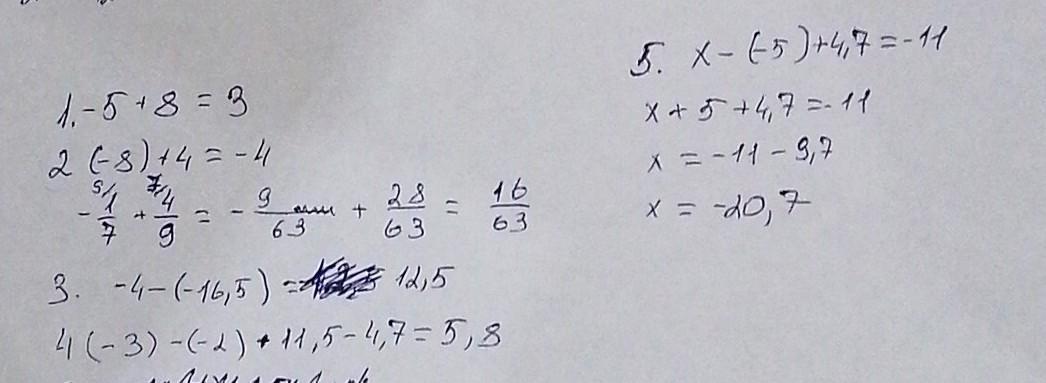 1. -5 + 8 = 3
2 (-8) + 4 = -4
- 1/7 + 4/9 = - 9/63 + 28/63 = 16/63
3. -4 - (-16,5) = 12,5
4 (-3) - (-2) + 11,5 - 4,7 = 5,8
5. x - (-5) + 4,7 = -11
x + 5 + 4,7 = -11
x = -11 - 9,7
x = -20,7